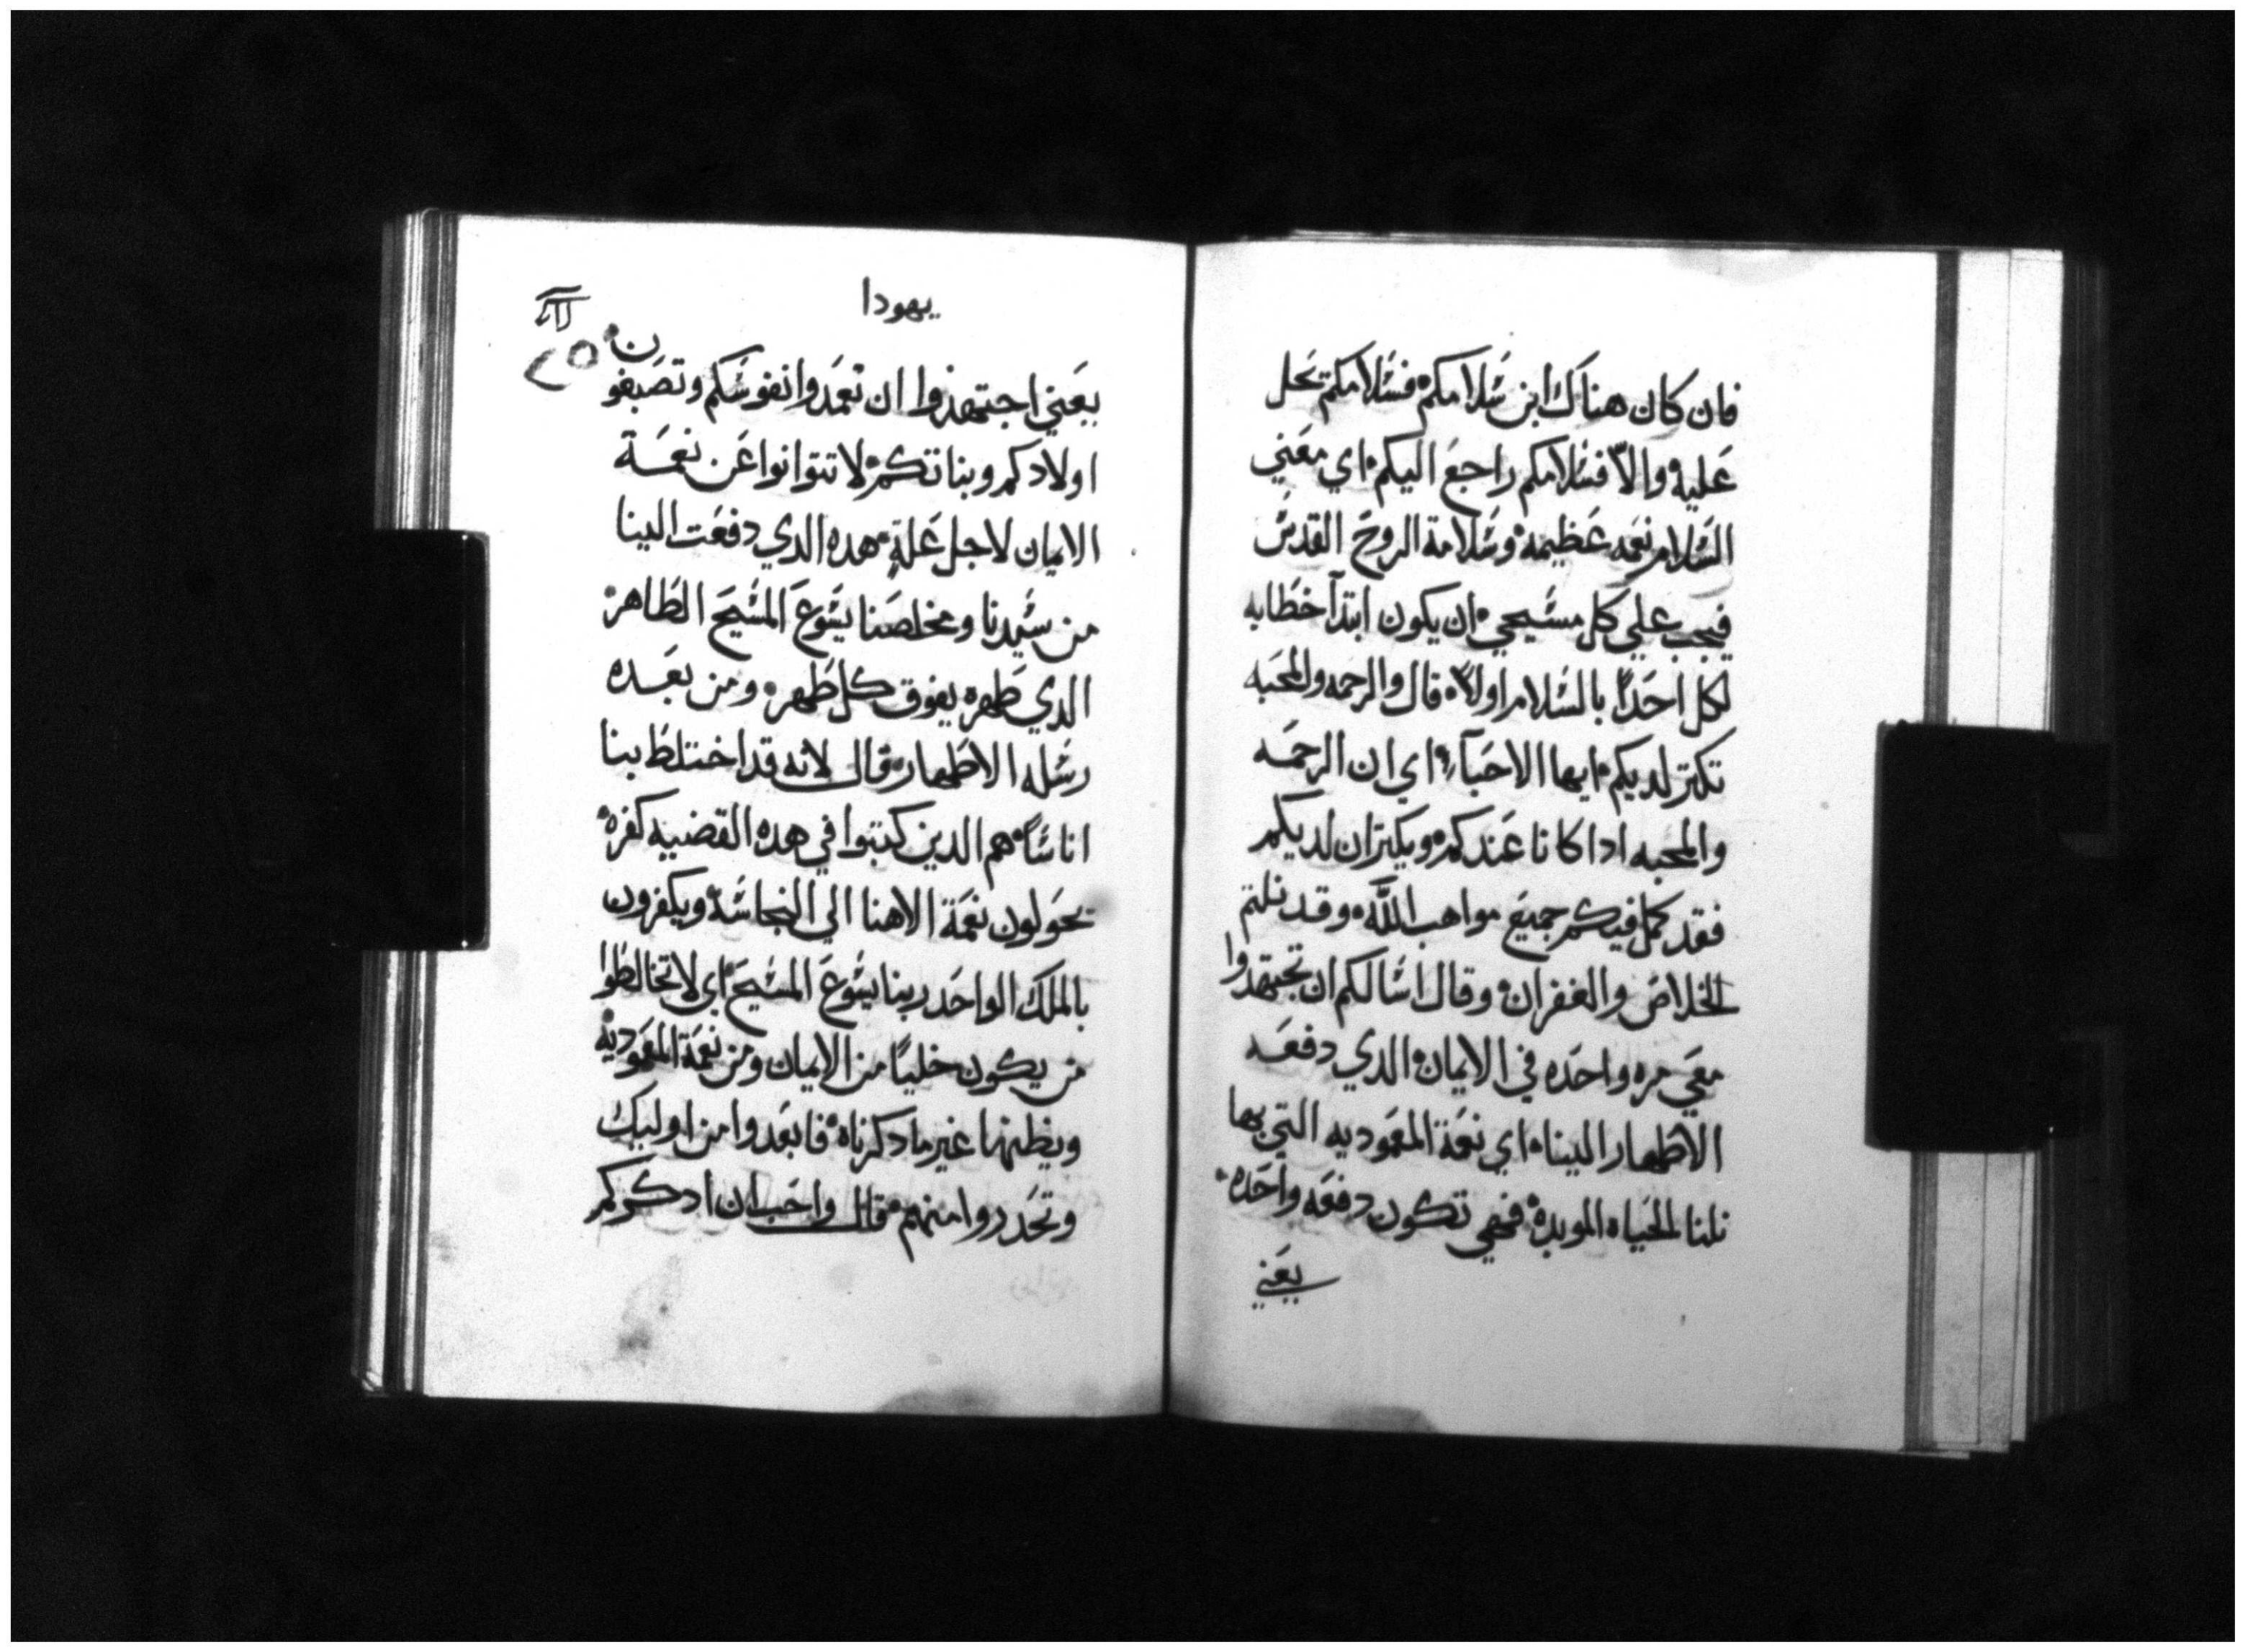 فان كان هناك ابن سلامكم فسلامكم تحل
عليه والا فسلامكم راجع اليكم اي معني
السلام نعمه عظيمه وسلامة الروح القدس
فيجب علي كل مسيحي ان يكون ابتدآ خطابه
لكل احداً بالسلام اولاً قال والرحمه والمحبه
تكتر لديكم ايها الاحبآء اي ان الرحمه
والمحبه ادا كانا عندكم ويكتران لديكم
فقد كمل فيكم جميع مواهب الله وقد نلتم
الخلاص والغفران وقال اسالكم ان تجتهدوا
معي مره واحده في الايمان الدي دفعه
الاطهار الينا اي نعمة المعموديه التي بها
نلنا الحياه الموبده فهي تكون دفعه واحده
يعني
يهودا
٢٥
يعني اجتهدوا ان تعمدوا نفوسكم وتصبغون
اولادكم وبناتكم لا تتوانوا عن نعمة
الايمان لاجل علة هده الدي دفعت الينا
من سيدنا ومخلصنا يسوع المسيح الطاهر
الدي طهره يفوق كل طهر ومن بعده
رسله الاطهار قال لانه قد اختلط بنا
اناساً هم الدين كتبوا في هده القضيه كفره
يحولون نعمة الاهنا الي النجاسة ويكفرون
بالملك الواحد ربنا يسوع المسيح اي لا تخالطوا
من يكون خلياً من الايمان ومن نعمة المعموديه
ويظنها غير ما دكرناه فابعدوا من اوليك
وتحدروا منهم قال واحب ان ادكركم